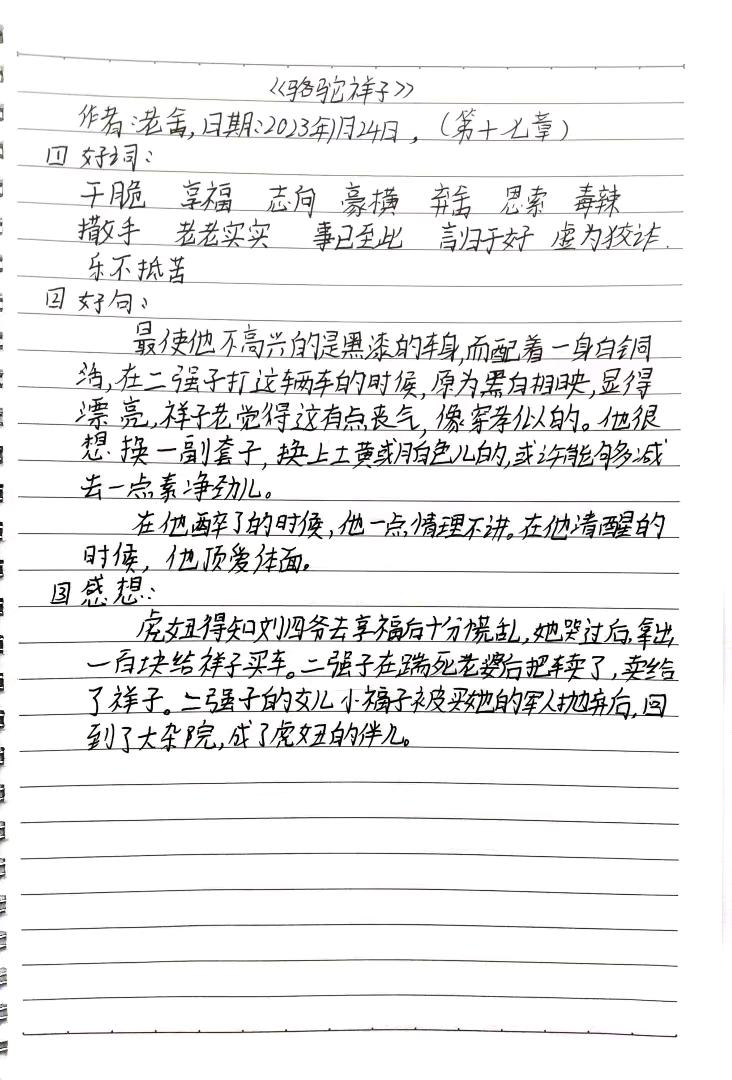 《骆驼祥子》
作者:老舍,日期:2023年1月24日,(第十七章)
1 好词:
干脆 享福 志向 豪横 弃舍 思索 毒辣
撒手 老老实实 事已至此 言归于好 虚为狡诈.
乐不抵苦
2 好句:
最使他不高兴的是黑漆的车身,而配着一身白铜
活,在二强子打这辆车的时候,原为黑白相映,显得
漂亮,祥子老觉得这有点丧气,像穿孝似的。他很
想换一副套子,换上土黄或月白色儿的,或许能够多减
去一点素净劲儿。
在他醉了的时候,他一点情理不讲。在他清醒的
时候,他顶爱体面。
3 感想:
虎妞得知刘四爷去享福后十分慌乱,她哭过后,拿出
一百块给祥子买车。二强子在踹死老婆后把车卖了,卖给
了祥子。二强子的女儿小福子被买她的军人抛弃后,回
到了大杂院,成了虎妞的伴儿。